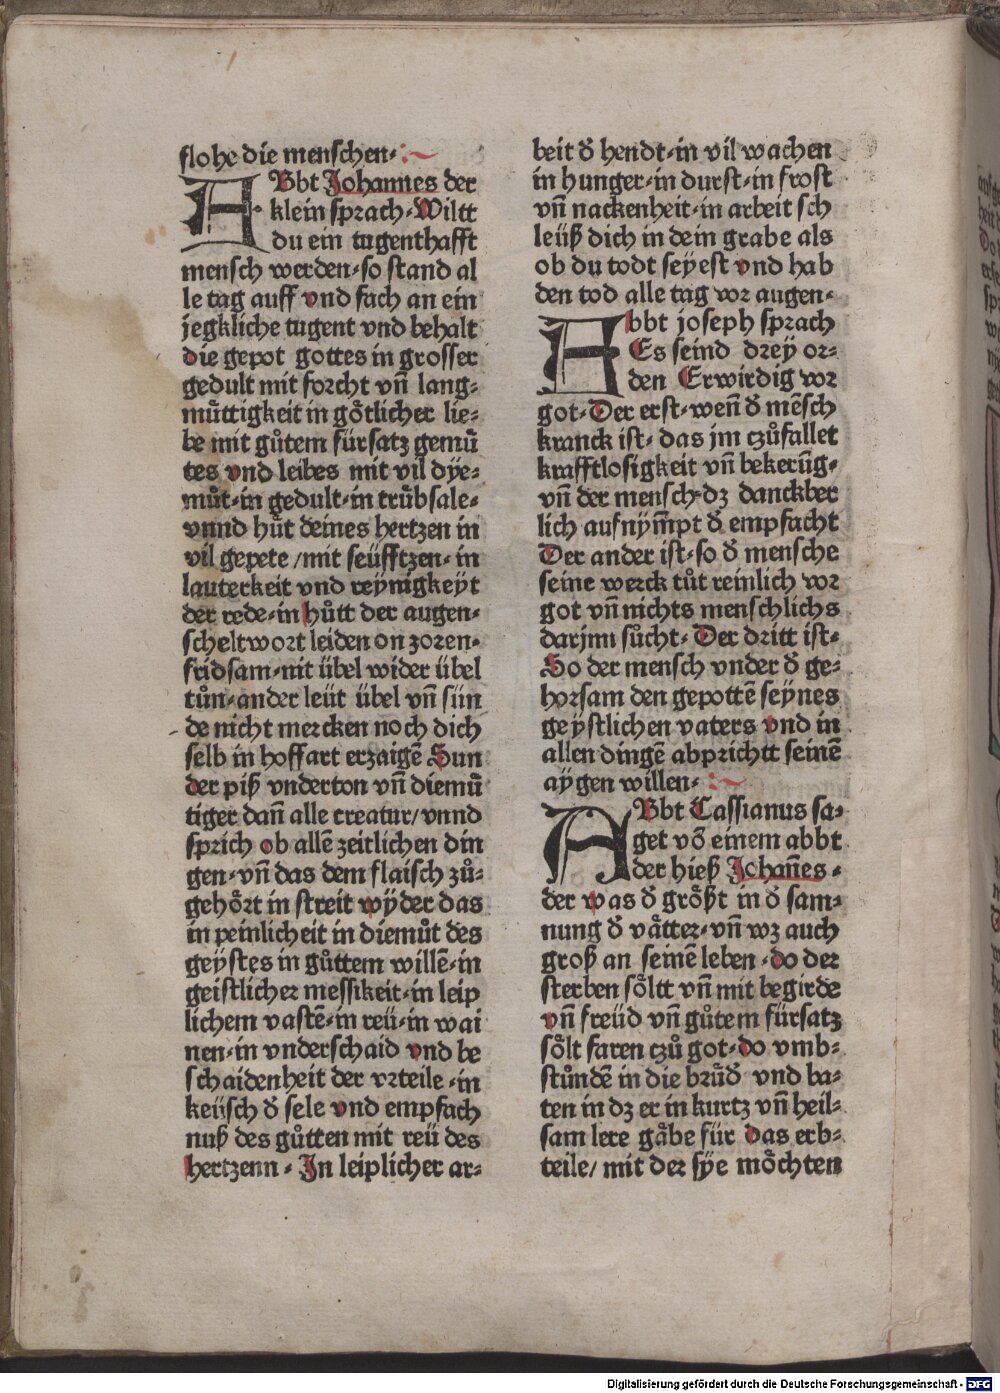 flohe die menschen·:~
ABbt Johannes der
klein sprach·Wiltt
du ein tugenthafft
mensch werden·so stand al
le tag auff vnd fach an ein
jegkliche tugent vnd behalt
die gepot gottes in grosser
gedult mit forcht vñ lang⸗
mu̇ttigkeit in gôtlicher lie⸗
be mit gůtem fürsatz gemů
tes vnd leibes mit vil dye⸗
můt·in gedult·in trůbsale·
vnnd hůt deines hertzen in
vil gepete /mit seüfftzen·in
lauterkeit vnd reynigkeyt
der rede·in hůtt der augen·
scheltwort leiden on zoren·
fridsam·nit übel wider übel
tůn·ander leüt übel vñ sün
de nicht mercken noch dich
selb in hoffart erzaigē Sun
der piß vnderton vñ diemů
tiger dañ alle creatur/vnnd
sprich ob allē zeitlichen din
gen·vñ das dem flaisch zů⸗
gehôrt in streit wyder das
in peinlicheit in diemůt des
geystes in gůttem willē·in
geistlicher messikeit·in leip
lichem vastē·in reü·in wai
nen·in vnderschaid vnd be
schaidenheit der vrteile·in
keüsch đ sele vnd empfach
nuß des gůtten mit reü des
hertzenn·Jn leiplicher ar⸗
beit đ hendt·in vil wachen
in hunger·in durst·in frost
vñ nackenheit·in arbeit sch
leüß dich in dein grabe als
ob du todt seyest vnd hab
den tod alle tag vor augen·
Abbt joseph sprach
Es seind drey or⸗
den Erwirdig vor
got·Der erst·weñ đ mēsch
kranck ist·das jm tzůfallet
krafftlosigkeit vñ bekerūg·
vñ der mensch·dz danckber
lich aufnym̄pt đ empfacht
Der ander ist·so đ mensche
seine werck tůt reinlich vor
got vñ nichts menschlichs
darjnn sůcht·Der dritt ist·
So der mensch vnder đ ge⸗
horsam den gepottē seynes
geystlichen vaters vnd in
allen dingē abprichtt seinē
aygen willen·:~
ABbt Cassianus sa⸗
get vō einem abbt
der hieß Johañes·
der was đ grôßt in đ sam⸗
nung đ våtter·vñ wz auch
groß an seinē leben·do der
sterben sôltt vñ mit begirde
vñ freüd vñ gůtem fürsatz
sôlt faren tzů got·do vmb⸗
stůndē in die brůđ vnd ba⸗
ten in dz er in kurtz vñ heil⸗
sam lere gåbe für das erb⸗
teile/ mit der sye môchten
Digitalisierung gefördert durch die Deutsche Forschungsgemeinschaft - DFG